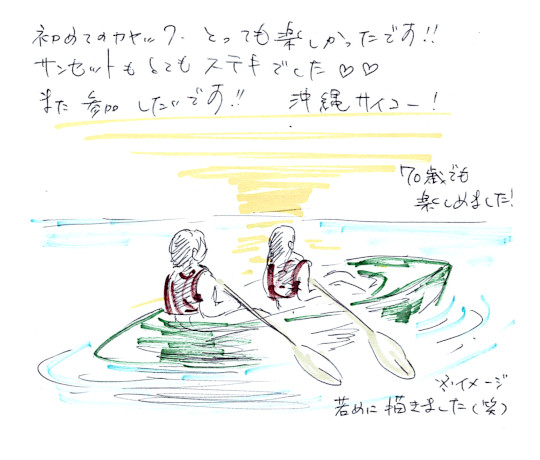 初めてのカヤック、とっても楽しかったです!!
サンセットもとてもステキでした♡♡
また参加したいです!! 沖縄サイコー!
70歳でも
楽しめました!
※イメージ
若めに描きました(笑)